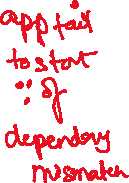 app fail
to start
:: of
dependency
mismatch